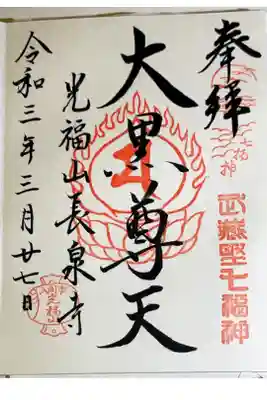 奉拝
武蔵野七福神
大黒尊天
光福山長泉寺
令和三年三月廿七日